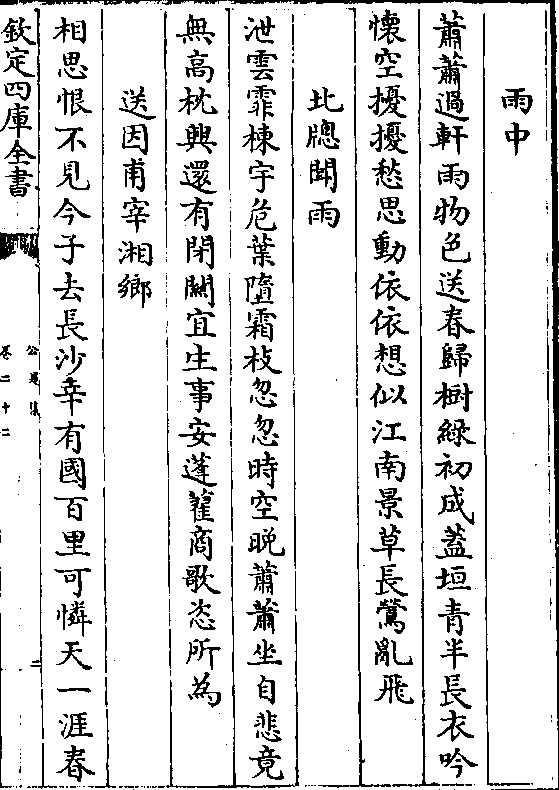 雨中
蕭蕭過軒雨物色送春歸樹綠初成蓋垣青半長衣吟
懷空擾擾愁思動依依想似江南景草長鶯亂飛
北牕聞雨
泄雲霏棟宇危葉墮霜枝忽忽時空晚蕭蕭坐自悲竟
無高枕興還有閉關宜生事安蓬藋商歌恣所為
送因甫宰湘鄉
相思恨不見今子去長沙幸有國百里可憐天一涯春
欽定四庫全書
公是集
卷二十二
二